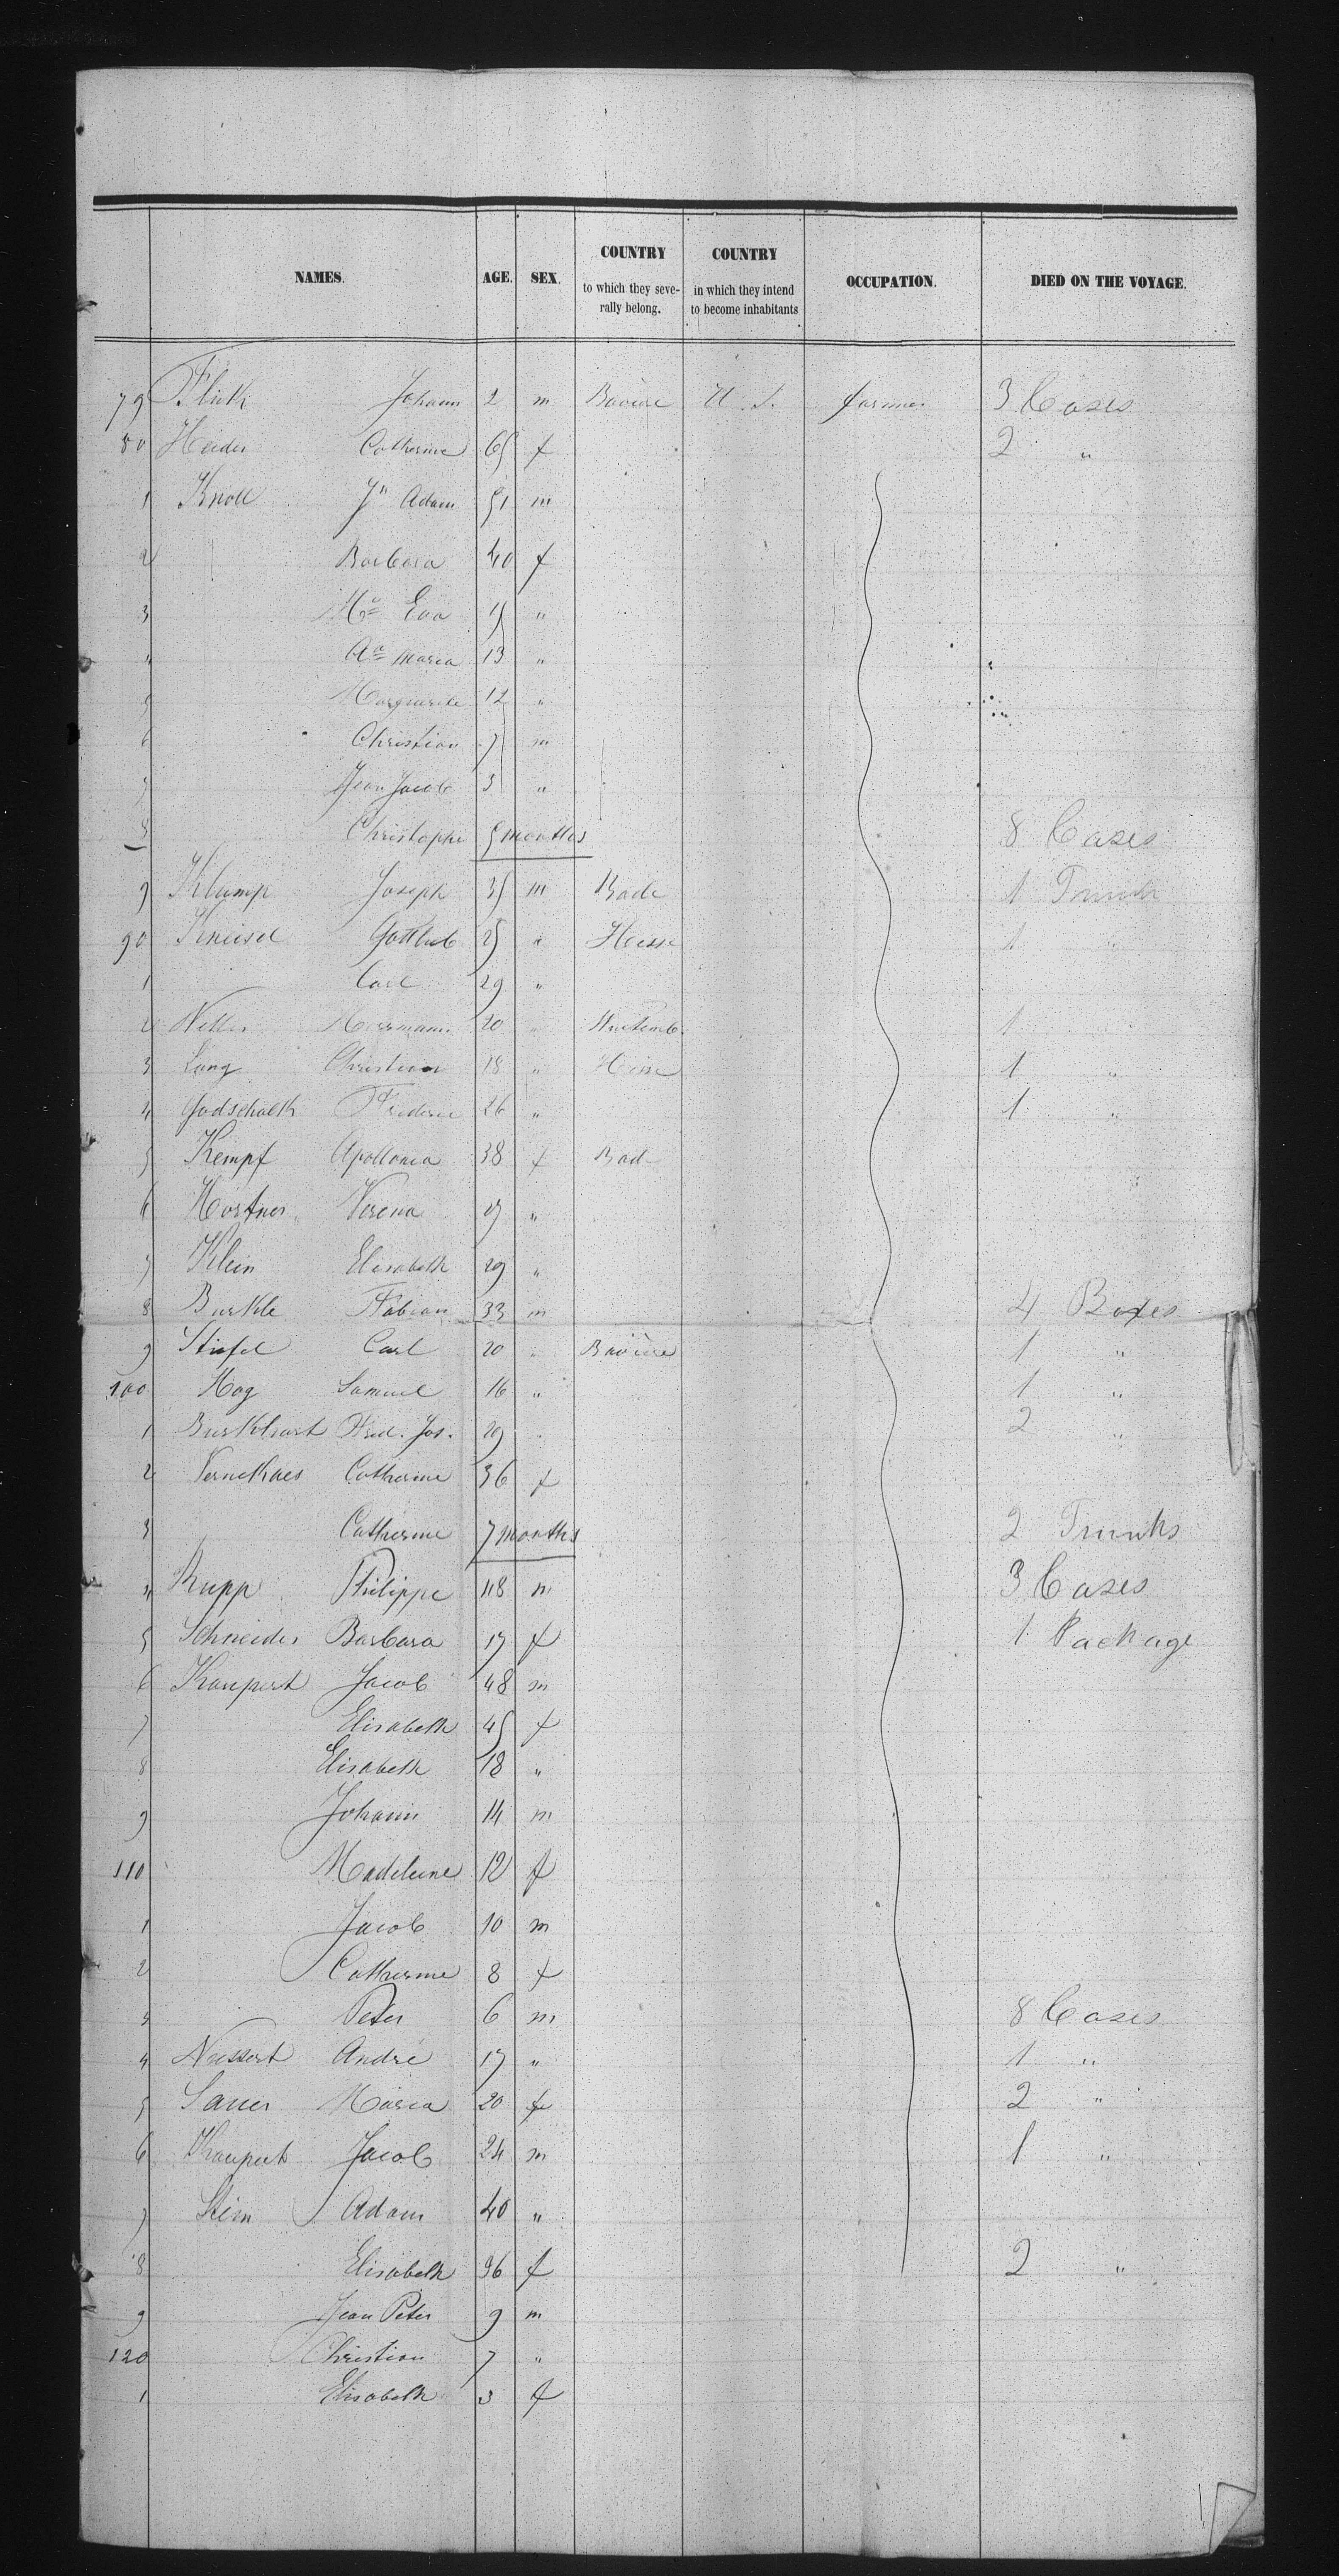 NAMES. AGE. SEX. COUNTRY to which they seve-rally belong. COUNTRY in which they intend to become inhabitants OCCUPATION. DIED ON THE VOYAGE.
79 Flick Johann 2 m Baviere U. S. farmer 3 Cases
80 Heider Catherine 65 f 2 "
1 Knoll Jn Adam 51 m
2 Barbara 40 f
3 Ma Eva 15 "
4 Aa Maria 13 "
5 Marguerite 12 "
6 Christian 7 m
7 Jean Jacob 3 "
8 Christophe 5 months 8 Cases
9 Klump Joseph 35 m Bade 1 Trunk
90 Kneisel Gottlieb 25 " Hesse 1 "
1 Carl 29 "
2 Herrmann 20 " Wurtemb. 1
3 Lang Christian 18 " Hesse 1 "
4 Godschalk Frederic 26 " 1 "
5 Kempf Apollonia 38 f Bade
6 Verena "
7 Klein Elisabeth 29 "
8 Burkle Fabian 33 m 4 Boxes
9 Stiefel Carl 20 " Baviere 1 "
100 Hog Samuel 16 " 1 "
1 Burkhart Fred. Jos. 29 2 "
2 Catherine 36 f
3 Catherine 7 months 2 Trunks
4 Rupp Philippe 48 m 3 Cases
5 Schneider Barbara 17 f 1 Package
6 Kaupert Jacob 48 m
7 Elisabeth 45 f
8 Elisabeth 18 "
9 Johann 14 m
110 Madeleine 12 f
1 Jacob 10 m
2 Catherine 8 f
3 Peter 6 m 8 Cases
4 André 17 " 1 "
5 Sauer Maria 20 f 2 "
6 Kaupert Jacob 24 m 1 "
7 Adam 40 "
8 Elisabeth 36 f 2 "
9 Jean Peter 9 m
120 Christian 7 "
1 Elisabeth 3 f